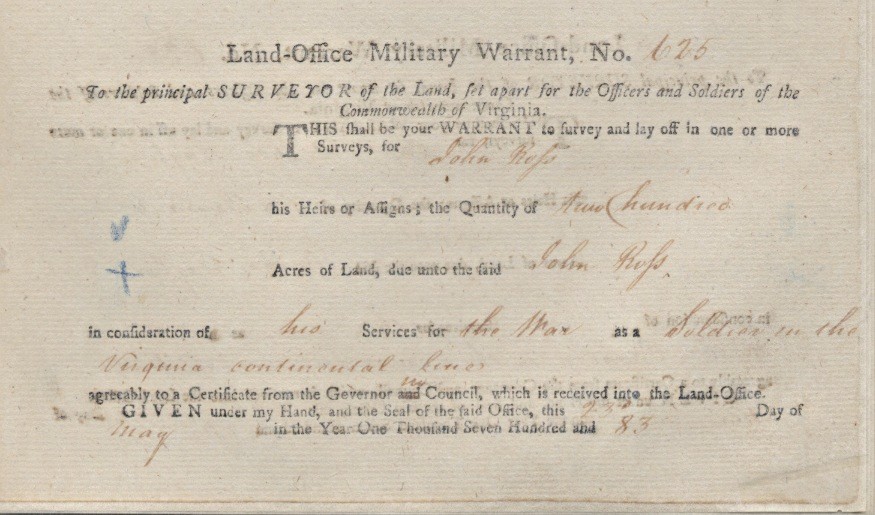 Land-Office Military Warrant, No. 625
To the principal SURVEYOR of the Land, set apart for the Officers and Soldiers of the
Commonwealth of Virginia.
THIS shall be your WARRANT to survey and lay off in one or more
Surveys, for John Ross
his Heirs or Assigns; the Quantity of two hundred
Acres of Land, due unto the said John Ross
in consideration of his Services for the War as a Soldier in the
Virginia continental line
agreeably to a Certificate from the Governor and Council, which is received into the Land-Office.
GIVEN under my Hand, and the Seal of the said Office, this Day of
May in the Year One Thousand Seven Hundred and 83